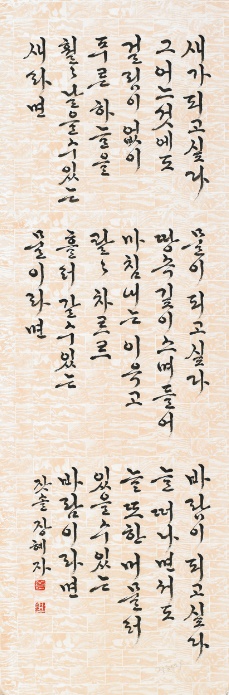 새가 되고싶라
그 어느것에도
걸림이 없이
푸른 하늘을
훨훨 날을수있는
새라면
물이 되고싶라
땅속깊이 스며들어
마침내는 이윽고
콸콸 차르르
흘러갈수있는
물이라면
바람이 되고싶라
늘 떠나면서도
늘 또한 머물러
있을수있는
바람이라면
잣솔 장혜자